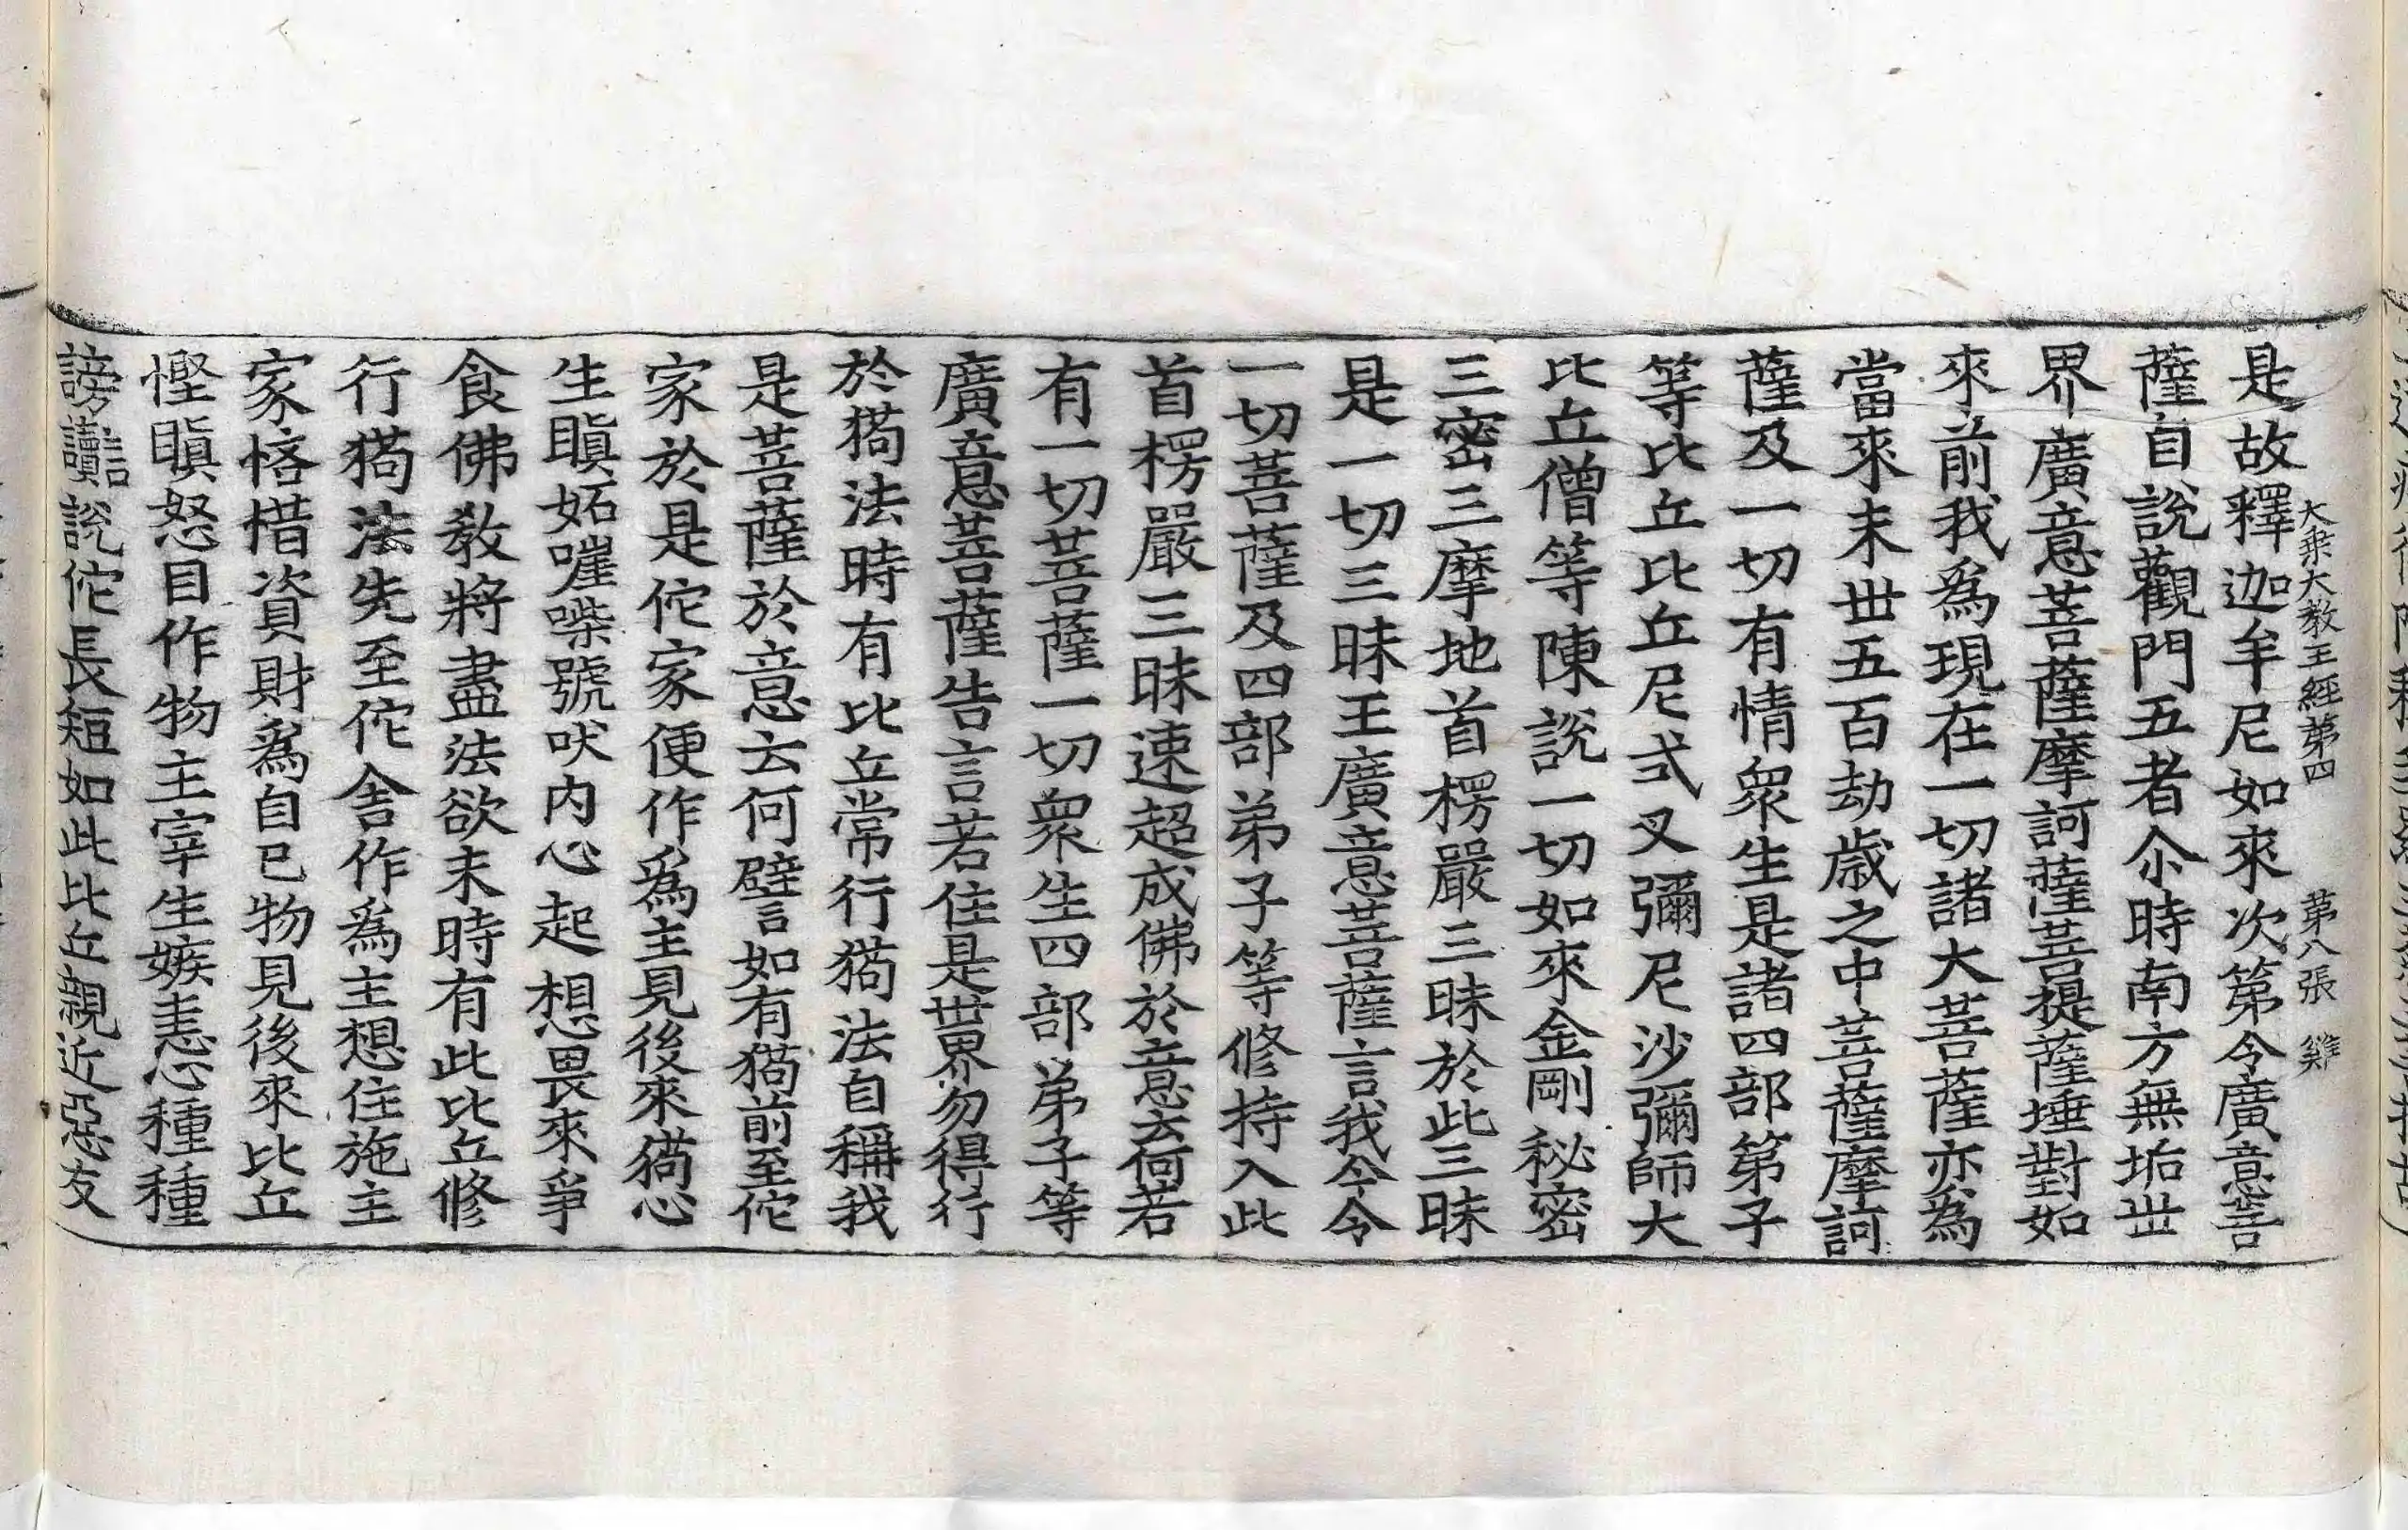 大乘大教王經第四　第八張　雞
是故釋迦牟尼如來次第令廣意菩
薩自說觀門五者尒時南方無垢世
界廣意菩薩摩訶薩菩提薩埵對如
來前我為現在一切諸大菩薩亦為
當來末世五百劫歲之中菩薩摩訶
薩及一切有情衆生是諸四部第子
等比丘比丘尼式叉彌尼沙彌師大
比丘僧等陳說一切如來金剛秘密
三密三摩地首楞嚴三昧於此三昧
是一切三昧王廣意菩薩言我今令
一切菩薩及四部弟子等修持入此
首楞嚴三昧速超成佛於意云何若
有一切菩薩一切衆生四部弟子等
廣意菩薩告言若住是世界勿得行
於猫法時有比丘常行猫法自稱我
是菩薩於意云何譬如有猫前至佗
家於是佗家便作為主見後來猫心
生瞋妬嘊喍號吠内心起想畏來爭
食佛教將盡法欲末時有此比丘修
行猫法先至佗舍作為主想住施主
家悋惜資財為自已物見後來比丘
慳瞋怒目作物主宰生嫉恚心種種
謗讟言說佗長短如此比丘親近惡友